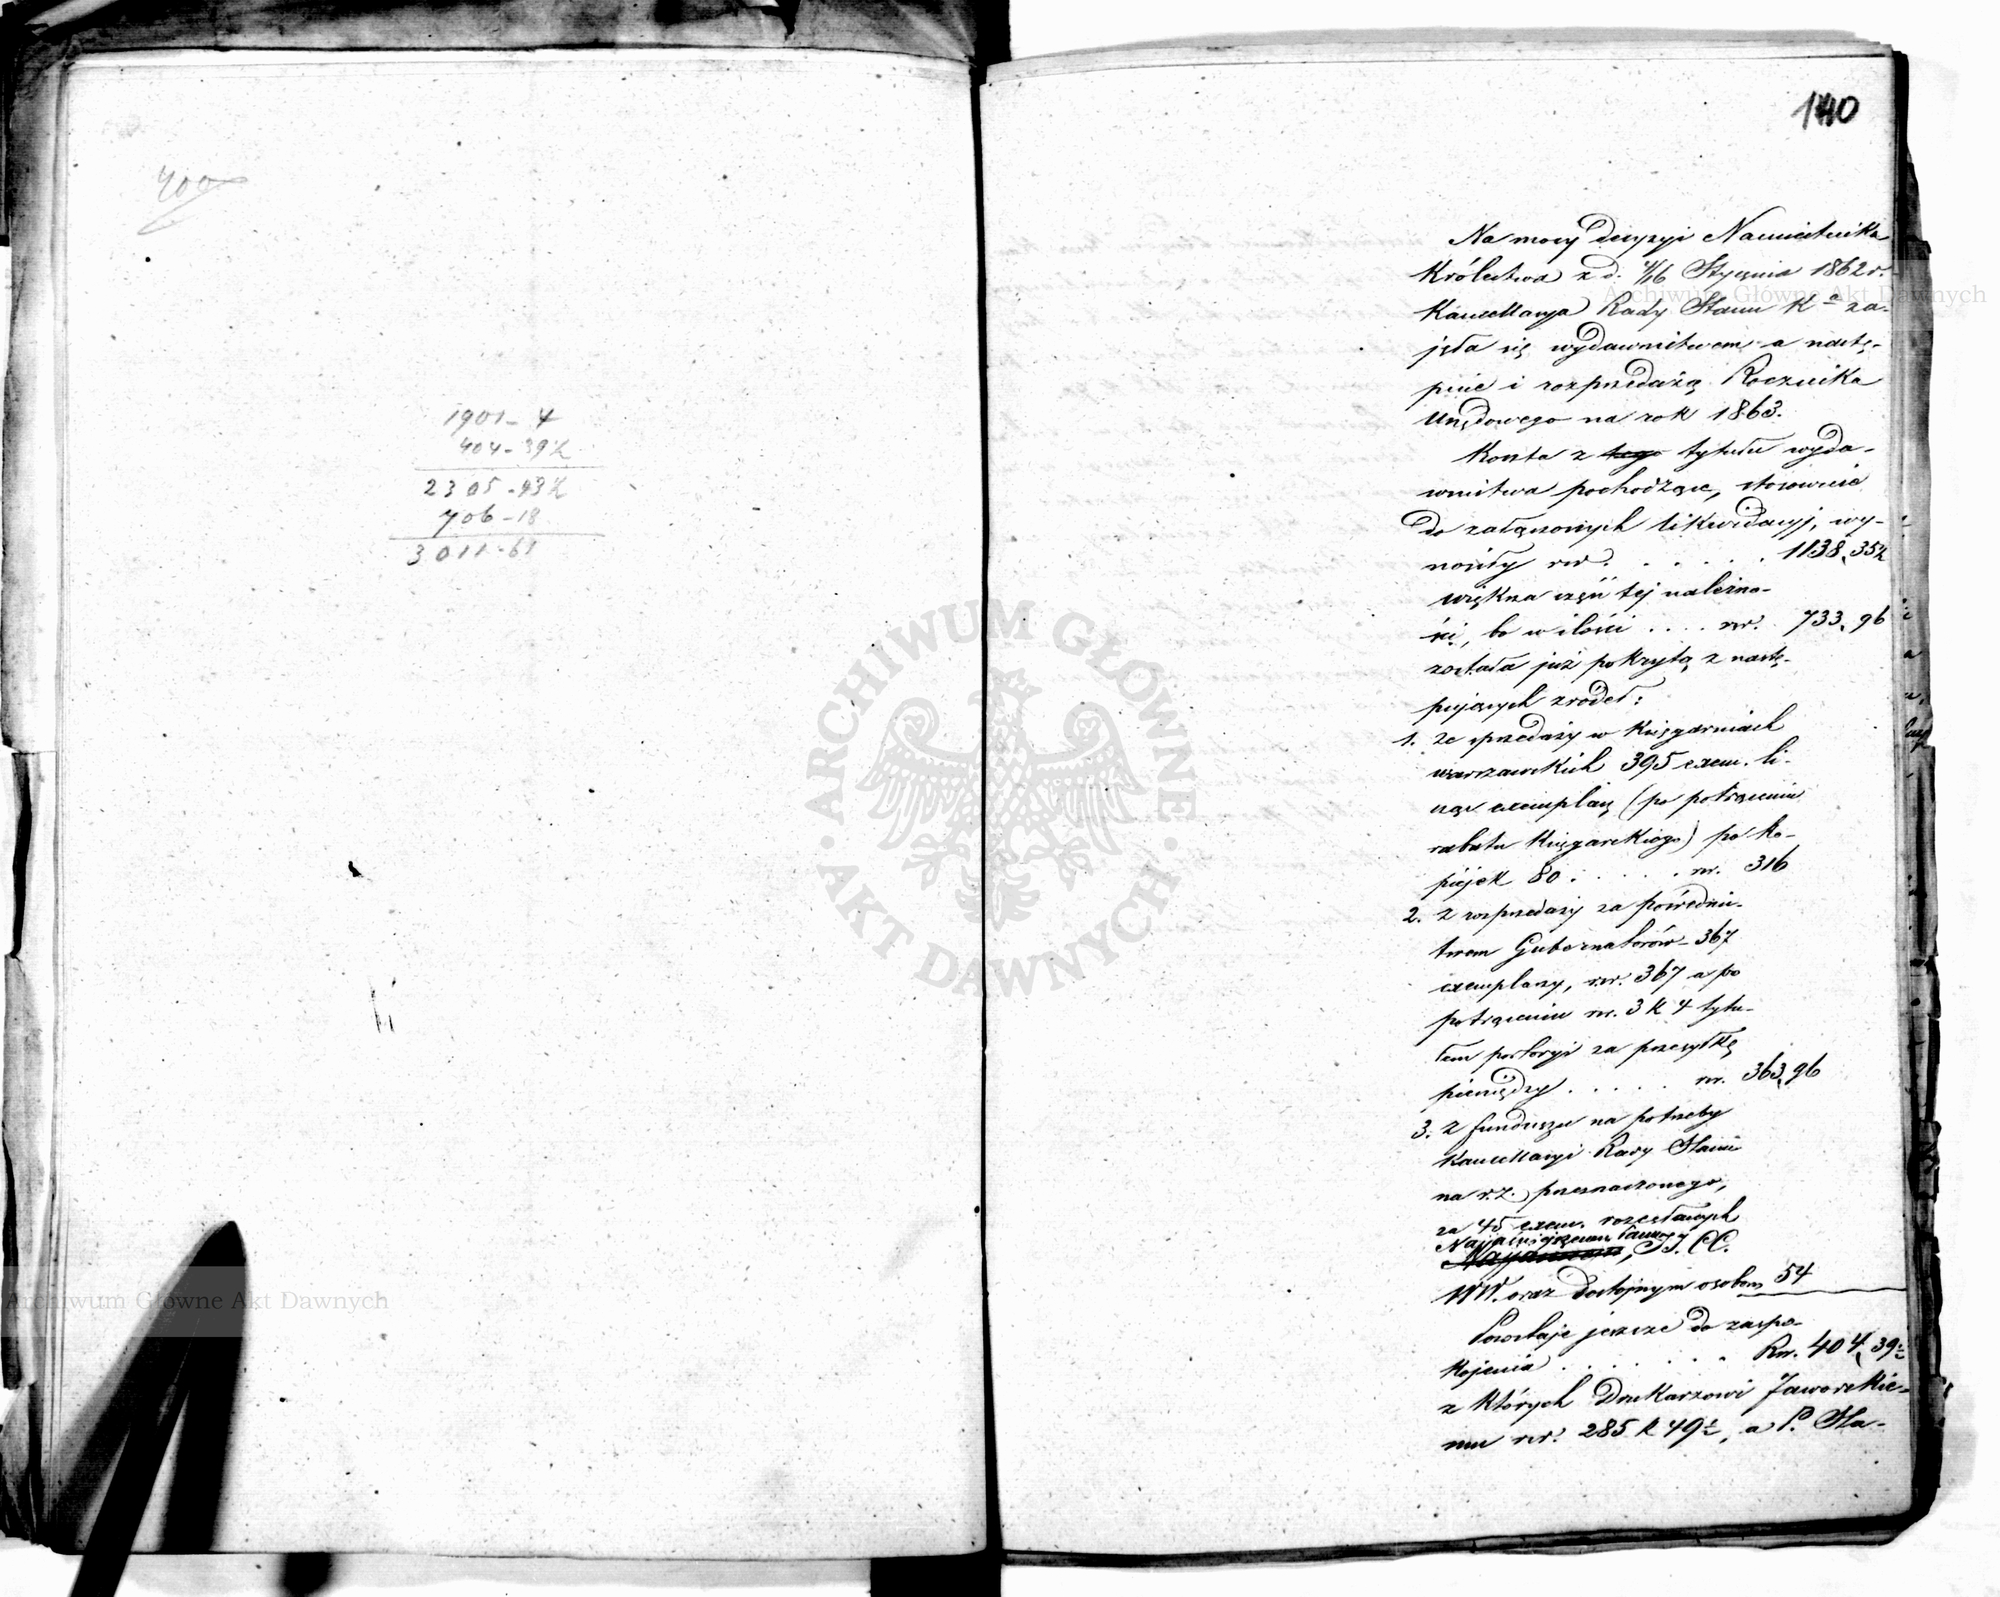 400
1901 - 4
404 - 39½
2305 - 43½
706 - 18
3011 - 61
140
Na mocy decyzyi Namiestnika
Królestwa z d. 4/16 Stycznia 1862 r.
Kancellarya Rady Stanu K-a za-
jęła się wydawnictwem a nastę-
pnie i rozprzedażą Rocznika
Urzędowego na rok 1863.
Koszta z tego tytułu wyda-
wnictwa pochodzące, stosownie
do załączonych likwidacyj, wy-
nosiły rsr. . . . . . 1138, 35½
większa część tej należno-
ści, bo w ilości . . . . rsr. 733, 96
została już pokrytą z nastę-
pujących źródeł:
1. ze sprzedaży w księgarniach
warszawskich 395 exem. li-
cząc exemplarz (po potrąceniu
rabatu księgarskiego) po ko-
piejek 80 . . . . . rsr. 316
2. z rozprzedaży za pośrednic-
twem Gubernatorów - 367
exemplarzy, rsr. 367 a po
potrąceniu rsr. 3 k 4 tytu-
łem portoryi za przesyłkę
pieniędzy . . . . . rsr. 363, 96
3. z funduszu na potrzeby
Kancellaryi Rady Stanu
na r. z. przeznaczonego,
za 45 exem. rozesłanych
Najjaśniejszemu Panu,
J. J. C. C.
W W. oraz dostojnym osobom 54
Pozostaje jeszcze do zaspo-
kojenia . . . . . . Rsr. 404, 39½
z których Drukarzowi Jaworskie-
mu rsr. 285 k 49½, a P. Sta-
Archiwum Główne Akt Dawnych
Archiwum Główne Akt Dawnych
ARCHIWUM GŁÓWNE
AKT DAWNYCH